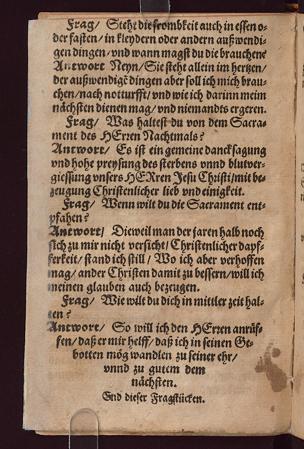 Frag/ Steht die frombkeit auch in essen o-
der fasten/ in kleydern oder andern außwendi-
gen dingen/ vnd wann magst du die brauchenꝰ
Antwort Neyn/ Sie steht allein im hertzen/
der außwendigē dingen aber soll ich mich brau-
chen/ nach notturfft/ vnd wie ich darinn mein
nächsten dienen mag/ vnd niemandts ergeren.
Frag/ Was haltest du von dem Sacra-
ment des HErren Nachtmals?
Antwort/ Es ist ein gemeine dancksagung
vnd hohe preysung des sterbens vnnd blutver-
giessung vnsers HERren Jesu Christi/ mit be-
zeugung Christenlicher lieb vnd einigkeit.
Frag/ Wenn wilt du die Sacrament ent-
pfahen?
Antwort/ Dieweil man der jaren halb noch
sich zu mir nicht versicht/ Christenlicher dapf-
ferkeit/ stand ich still/ Wo ich aber verhoffen
mag/ ander Christen damit zu bessern/ will ich
meinen glauben auch bezeugen.
Frag/ Wie wilt du dich in mittler zeit hal-
ten?
Antwort/ So will ich den HErren anrüf-
fen/ daß er mir helff/ daß ich in seinen Ge-
botten mög wandlen zu seiner ehr/
vnnd zu gutem dem
nächsten.
End dieser Fragstücken.